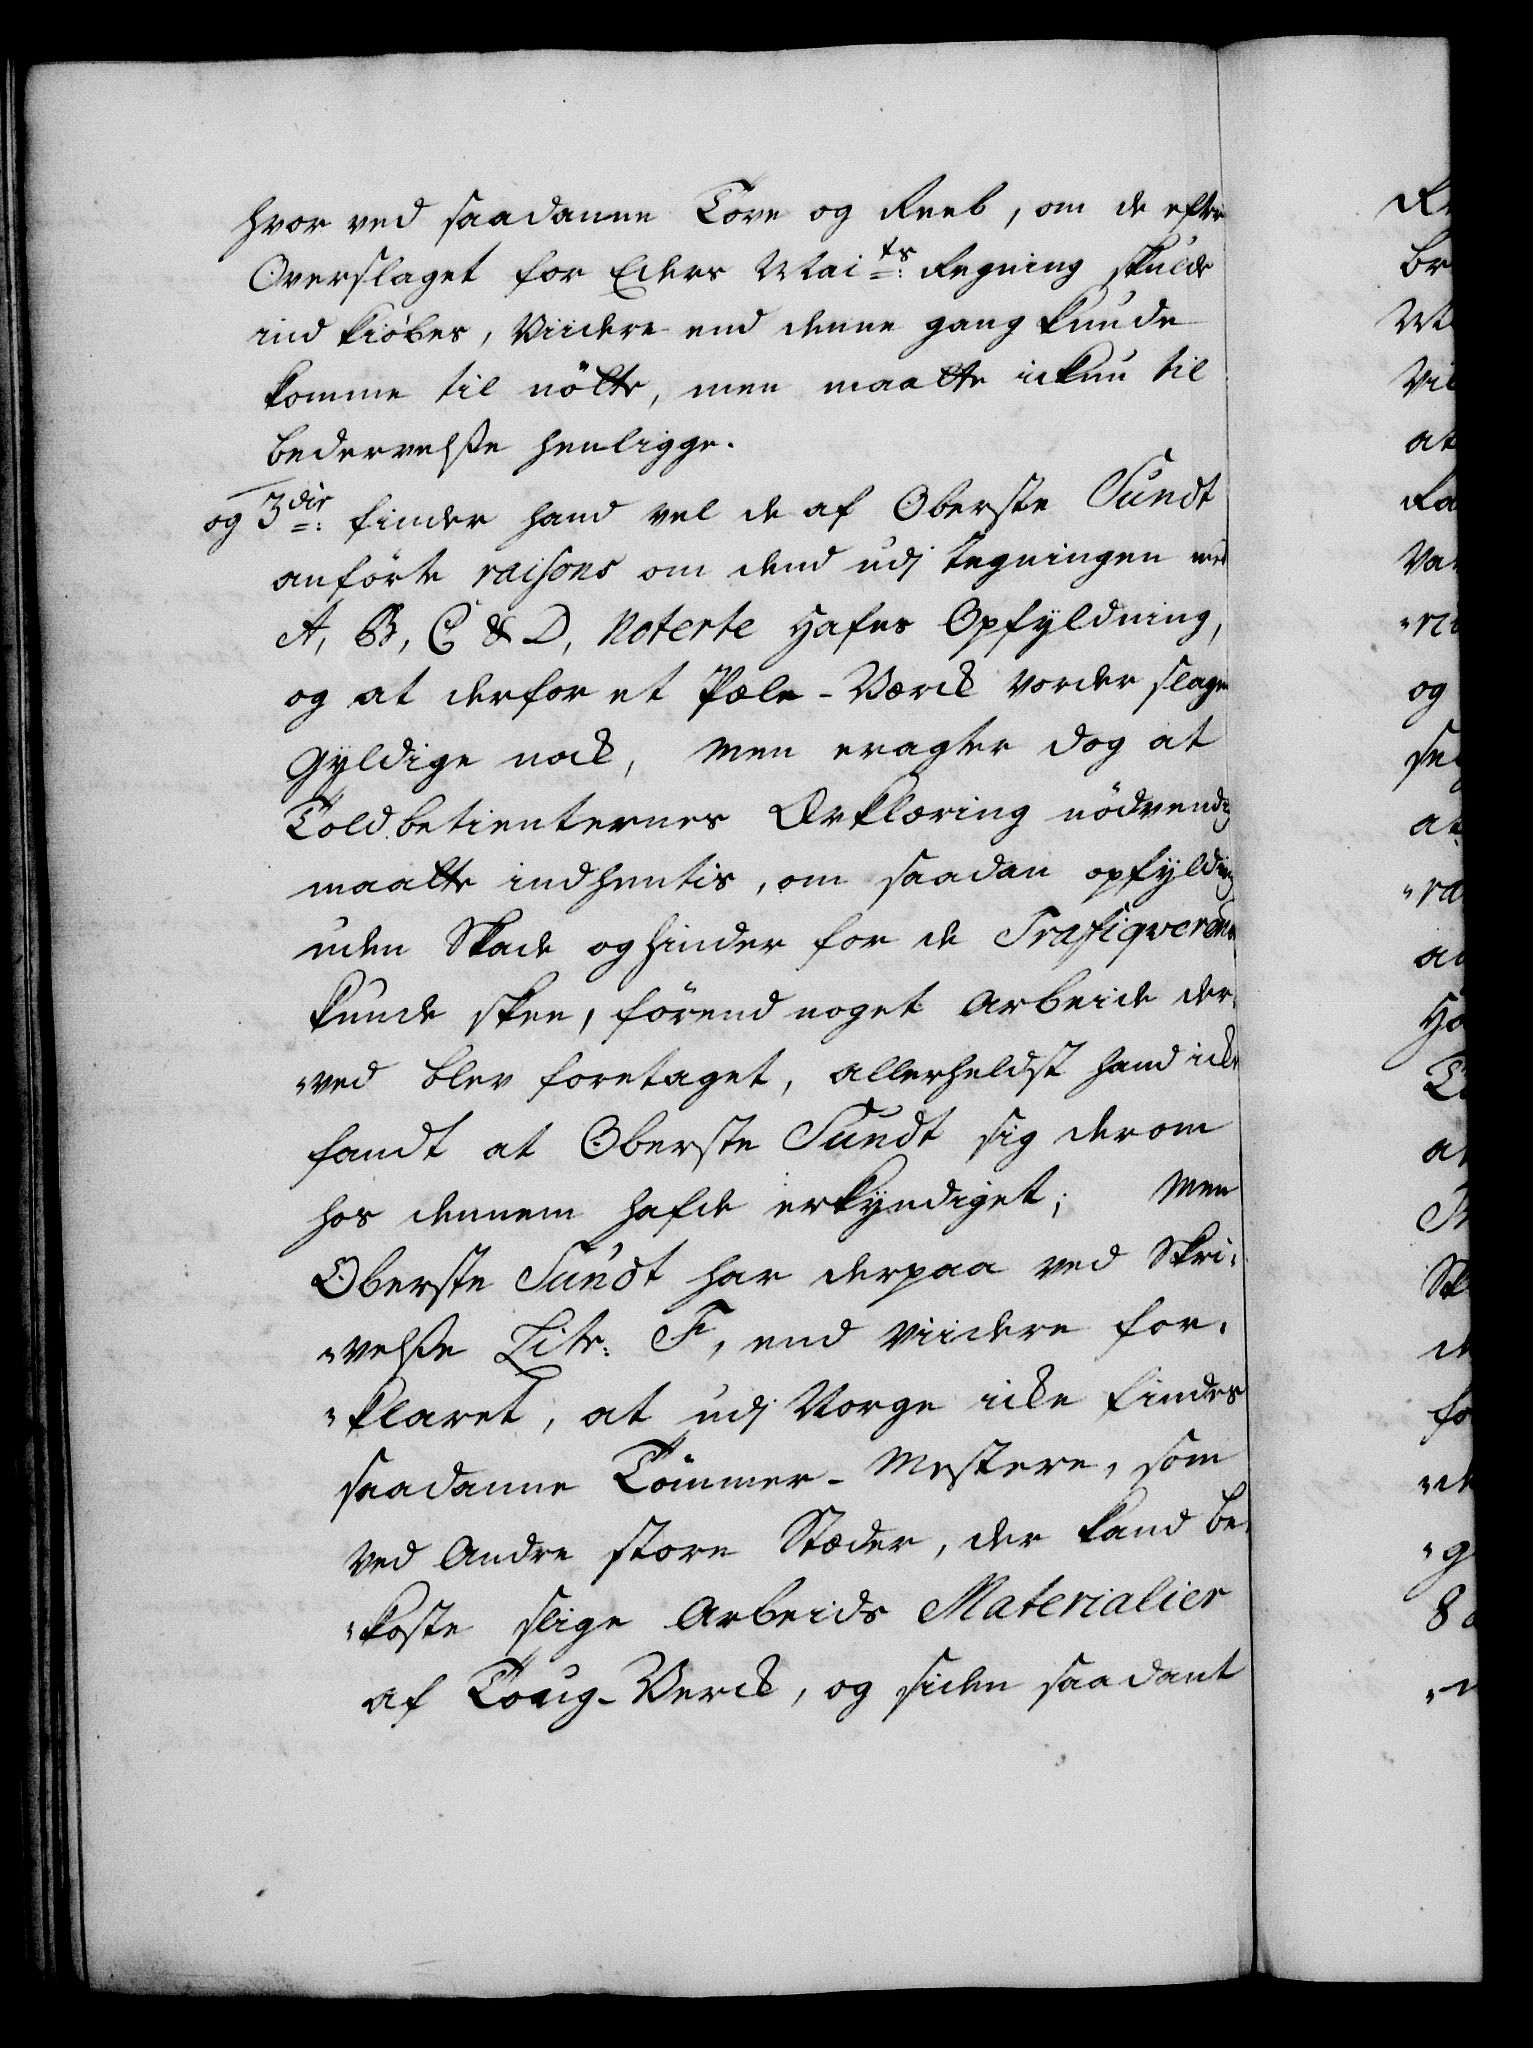 hvor ved saadanne Tove og Reeb, om de efter
Overslaget for Eders Mai ts: Regning skulde
ind kiöbes, Viidere end denne gang kunde
komme til nötte, men maatte ickun til
bedervelsse henligge.
og 3die: finder hand vel de af Oberste Sundt
anförte raisons om dend udj tegningen med
A, B, C & D, Noterte Hafns Opfyldning,
og at derfor et Pæle-Værck vorder slagen
Gyldige nock, Men eragter dog at
Toldbetienternes Ærklæring nödvendig
maatte indhentis, om saadan opfylding
uden Skade og hinder for de Trafiqverende
kunde skee, förend noget Arbeide der,
"ved blev foretaget, allerheldst hand icke
fandt at Oberste Sundt sig derom
hos dennem hafde erkyndiget; Men
Oberste Sundt har derpaa ved Skri,
"velsse Litr: F, end viidere for,
"klaret, at udj Norge icke findes
saadanne Tömmer-Mestere, som
ved Andre store Stæder, der kand be,
"koste slige Arbeids Materialier
af Toug-Verck, og siden saadant